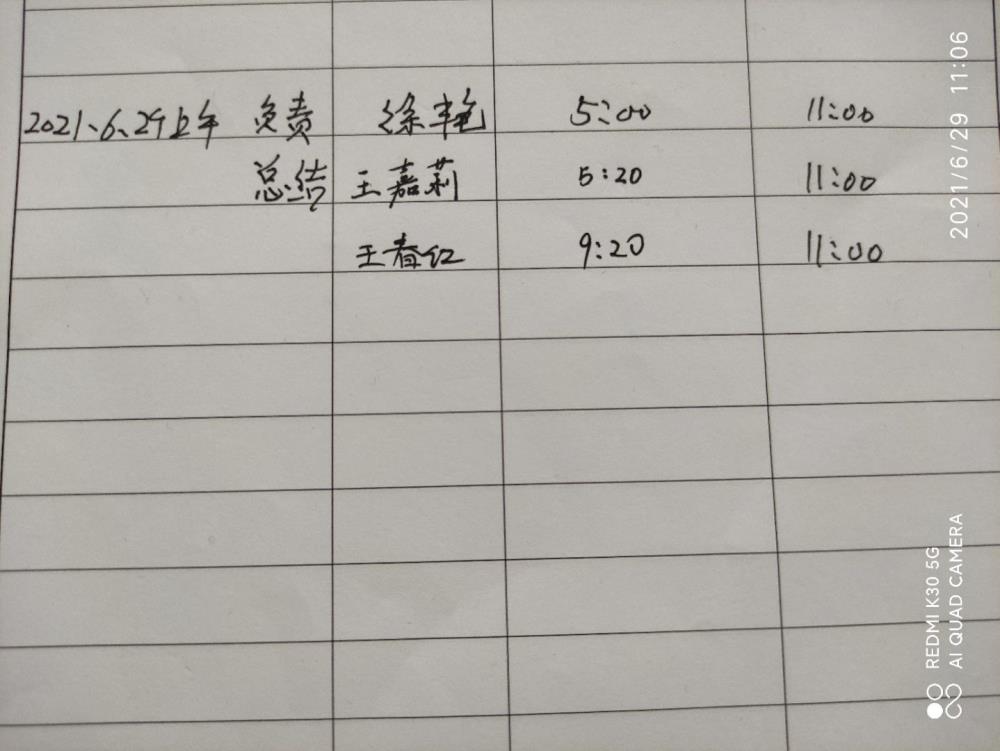 2021、6、29上午 负责 徐丰艳 5:00 11:00
总结 王嘉莉 5:20 11:00
王春红 9:20 11:00
2021/6/29 11:06
REDMI K30 5G
AI QUAD CAMERA